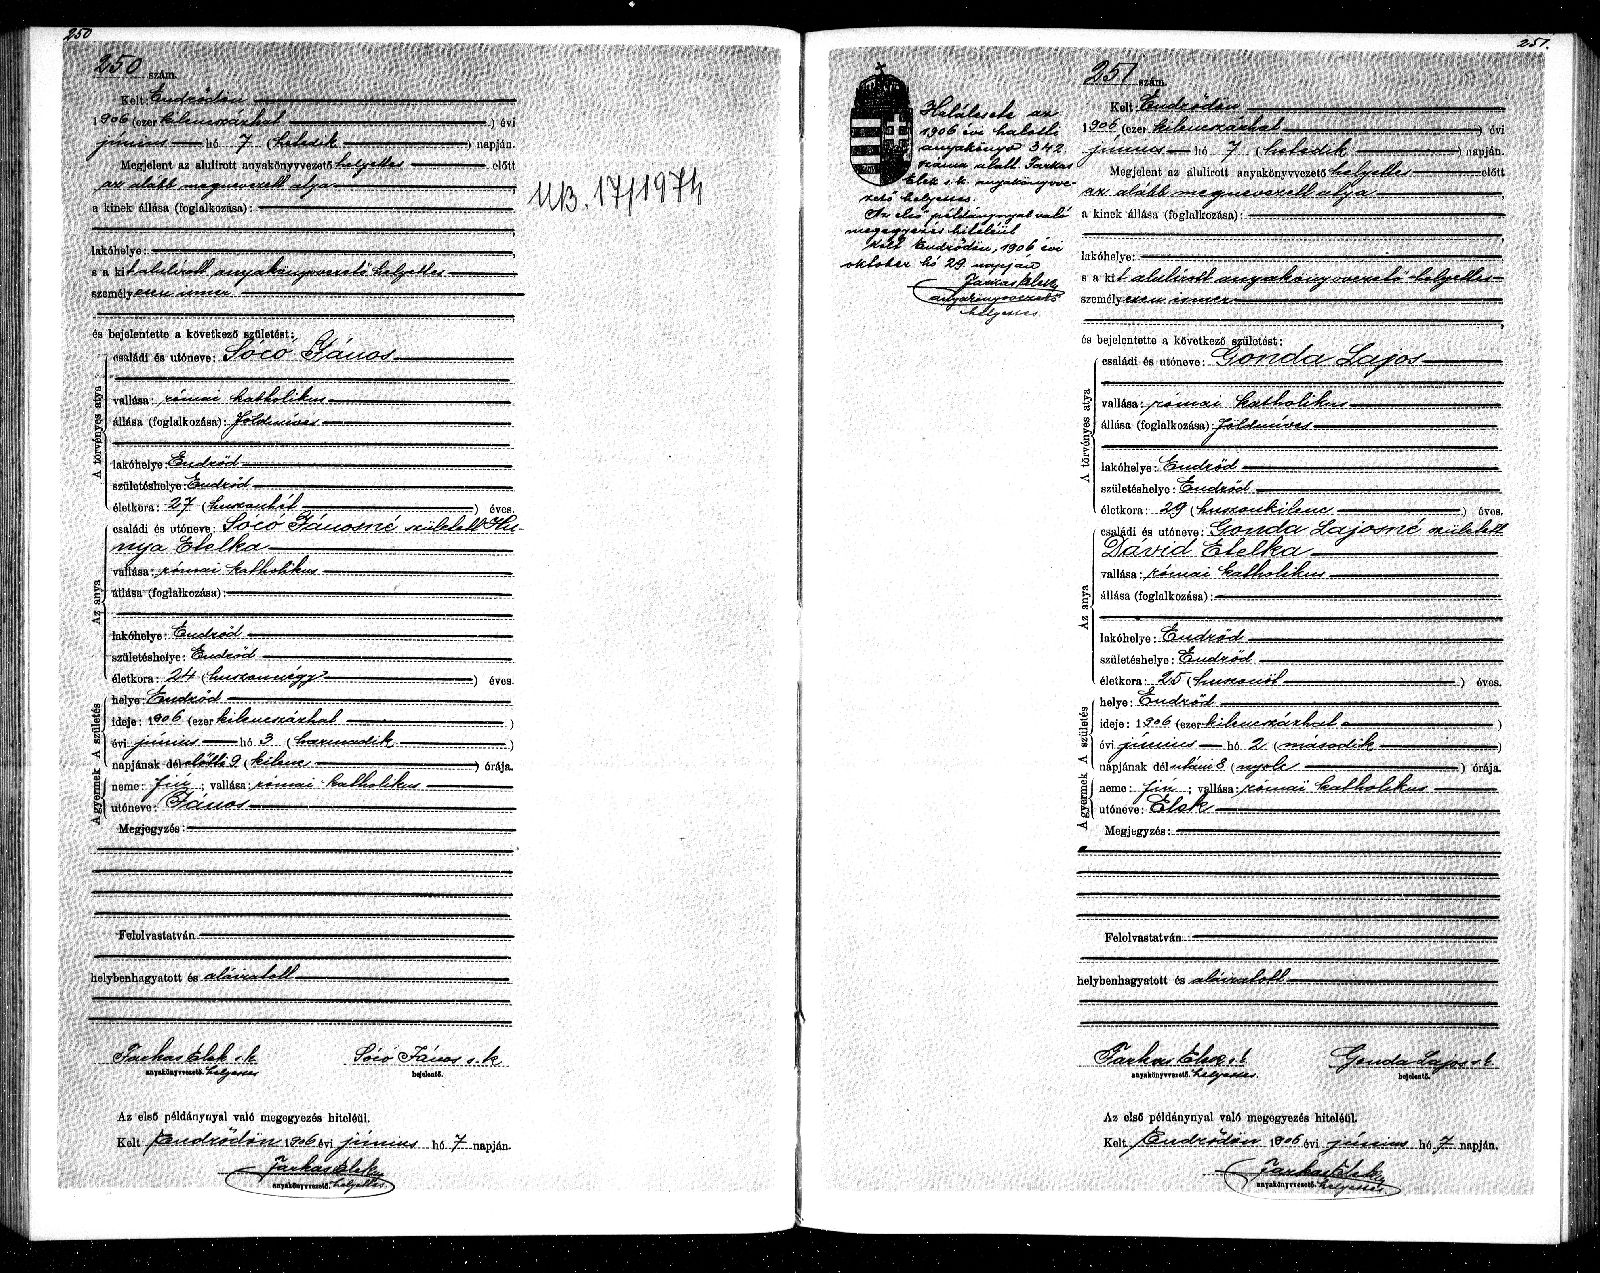 250
250 szám.
Kelt Endrődön
1906 (ezer kilencszázhat) évi
június hó 7 (hetedik) napján.
Megjelent az alulirott anyakönyvvezető helyettes előtt
az alább megnevezett atya
a kinek állása (foglalkozása):
lakóhelye:
s a kit alulírott anyakönyvvezető helyettes
személyesen ismer
és bejelentette a következő születést:
A törvényes atya
családi és utóneve: Sóczó János
vallása: római katholikus
állása (foglalkozása): földmíves
lakóhelye: Endrőd
születéshelye: Endrőd
életkora: 27 (huszonhét) éves.
Az anya
családi és utóneve: Sóczó Jánosné született Hu-
nya Etelka
vallása: római katholikus
állása (foglalkozása):
lakóhelye: Endrőd
születéshelye: Endrőd
életkora: 24 (huszonnégy) éves.
A születés
helye: Endrőd
ideje: 1906 (ezer kilencszázhat)
évi június hó 3 (harmadik)
napjának délelőtti 9 (kilenc) órája.
A gyermek
neme: fiú; vallása: római katholikus
utóneve: János
Megjegyzés:
Felolvastatván
helybenhagyatott és aláiratott
Farkas Elek s. k. Sóczó János s. k.
anyakönyvvezető. helyettes bejelentő.
Az első példánynyal való megegyezés hiteléül.
Kelt Endrődön 1906 évi június hó 7 napján.
Farkas Elek
anyakönyvvezető. helyettes.
UB. 17/1974
251.
Halálesete az
1906 évi halotti
anyakönyv 342
száma alatt Farkas
Elek s.k. anyakönyvve-
zető helyettes.
Az első példánynyal való
megegyezés hiteléül
Kelt Endrődön, 1906 évi
október hó 29 napján
Farkas Elek
anyakönyvvezető
helyettes.
251 szám.
Kelt Endrődön
1906 (ezer kilencszázhat) évi
június hó 7 (hetedik) napján.
Megjelent az alulirott anyakönyvvezető helyettes előtt
az alább megnevezett atya
a kinek állása (foglalkozása):
lakóhelye:
s a kit alulírott anyakönyvvezető helyettes
személyesen ismer
és bejelentette a következő születést:
A törvényes atya
családi és utóneve: Gonda Lajos
vallása: római katholikus
állása (foglalkozása): földmíves
lakóhelye: Endrőd
születéshelye: Endrőd
életkora: 29 (huszonkilenc) éves.
Az anya
családi és utóneve: Gonda Lajosné született
Dávid Etelka
vallása: római katholikus
állása (foglalkozása):
lakóhelye: Endrőd
születéshelye: Endrőd
életkora: 25 (huszonöt) éves.
A születés
helye: Endrőd
ideje: 1906 (ezer kilencszázhat)
évi június hó 2 (második)
napjának délutáni 8 (nyolc) órája.
A gyermek
neme: fiú; vallása: római katholikus
utóneve: Elek
Megjegyzés:
Felolvastatván
helybenhagyatott és aláiratott
Farkas Elek s. k. Gonda Lajos s. k.
anyakönyvvezető. helyettes. bejelentő.
Az első példánynyal való megegyezés hiteléül.
Kelt Endrődön 1906 évi június hó 7 napján.
Farkas Elek
anyakönyvvezető. helyettes